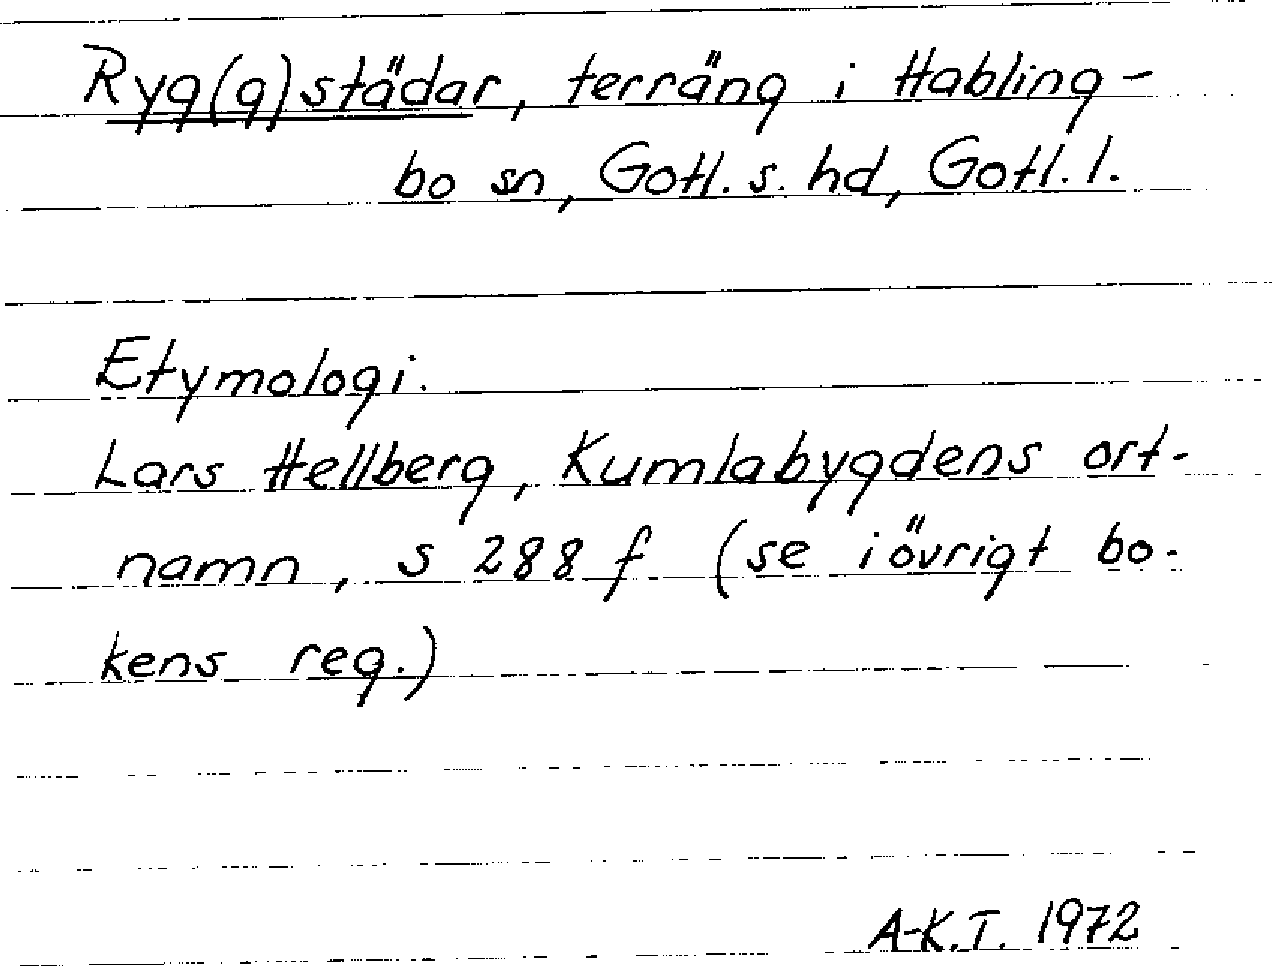 Ryg(g)städar, terräng i Habling-
bo sn, Gotl. s. hd, Gotl. l.
Etymologi.
Lars Hellberg, Kumlabygdens ort-
namn, s 288 f (se i övrigt bo-
kens reg.)
A-K.T. 1972